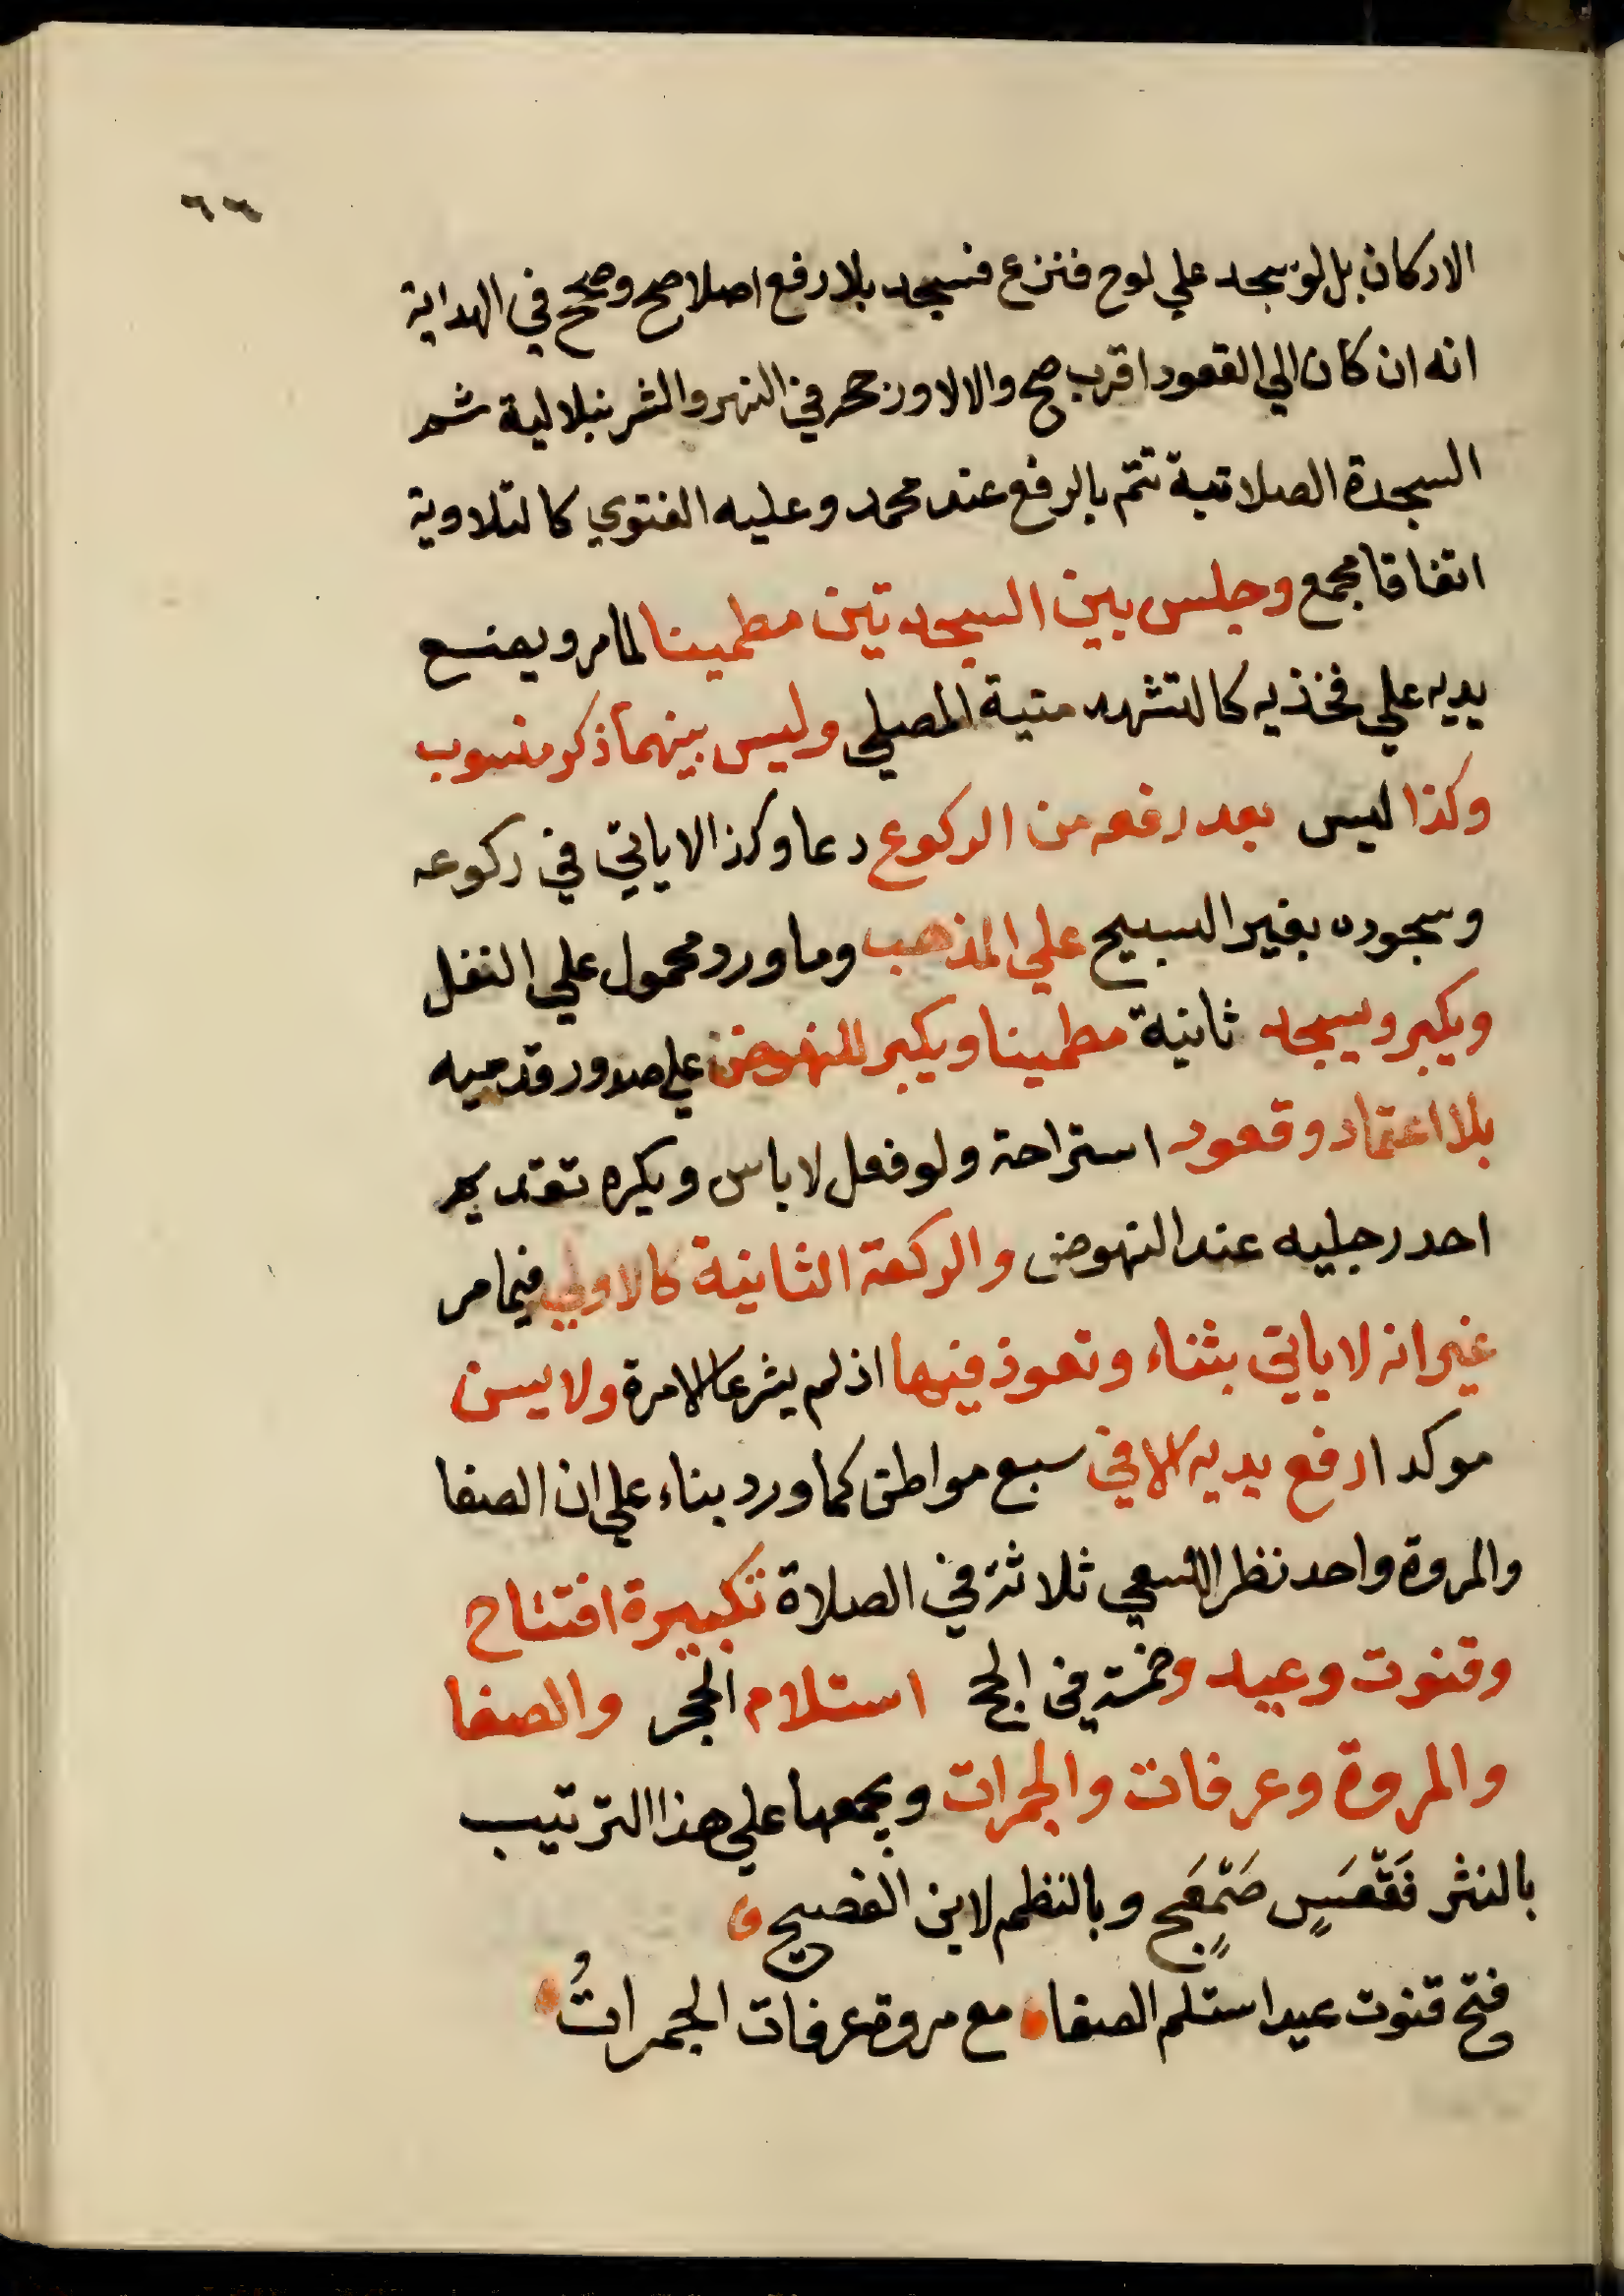 ٦٦
الاركان بل لو سجد علي لوح فنزع فسجد بلا رفع اصلا صح وصحح في الهداية
انه ان كان الي القعود اقرب صح والا لا ورجحه في النهر والشرنبلالية ثم
السجدة الصلاتية تتم بالرفع عند محمد وعليه الفتوي كالتلاوية
اتفاقا مجمع وجلس بين السجدتين مطمينا لما مر ويضع
يديه علي فخذيه كالتشهد منية المصلي وليس بينهما ذكر مسنون
وكذا ليس بعد رفعه من الركوع دعا وكذا لا ياتي في ركوعه
وسجوده بغير التسبيح علي المذهب وما ورد محمول علي النفل
ويكبر ويسجد ثانية مطمينا ويكبر للنهوض علي صدور قدميه
بلا اعتماد وقعود استراحة ولو فعل لا باس ويكره تقديم
احد رجليه عند النهوض والركعة الثانية كالاولي فيما مر
غير انه لا ياتي بثناء وتعوذ فيها اذ لم يشرعا الا مرة ولا يسن
موكدا رفع يديه الا في سبع مواطن كما ورد بناء علي ان الصفا
والمروة واحد نظرا للسعي ثلاثة في الصلاة تكبيرة افتتاح
وقنوت وعيد وخمسة في الحج استلام الحجر والصفا
والمروة وعرفات والجمرات ويجمعها علي هذا الترتيب
بالنثر فَقْعَسٍ صَمْعَجٍ وبالنظم لابن الفصيح
فتح قنوت عيد استلم الصفا مع مروة عرفات الجمراتُ